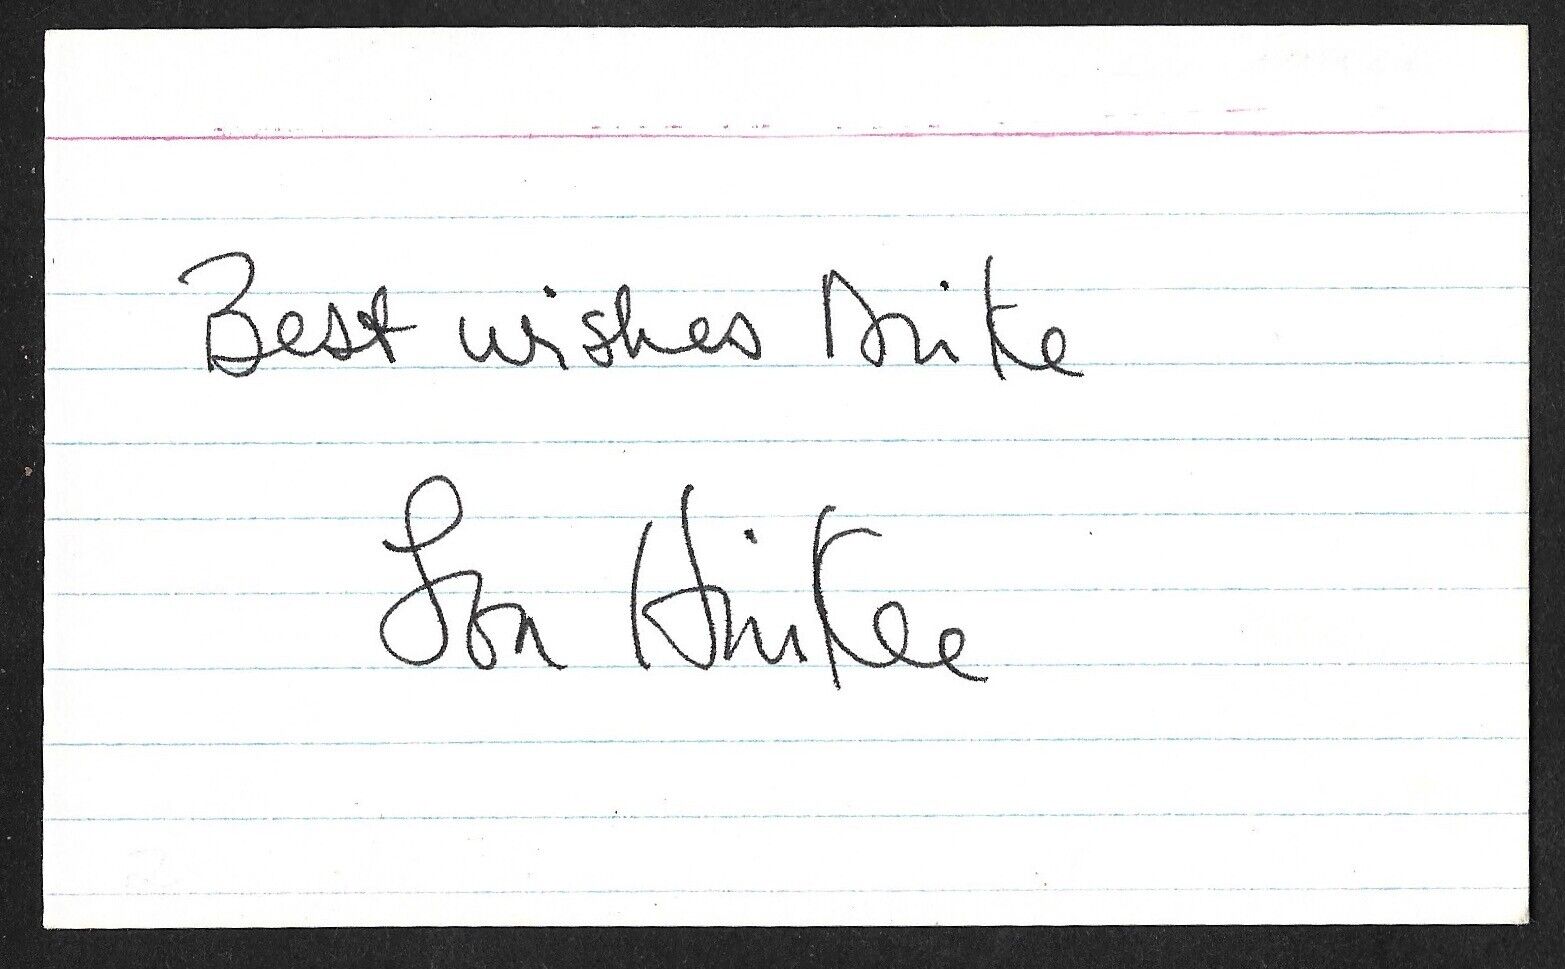 Best wishes Mike
Lon Hinkle